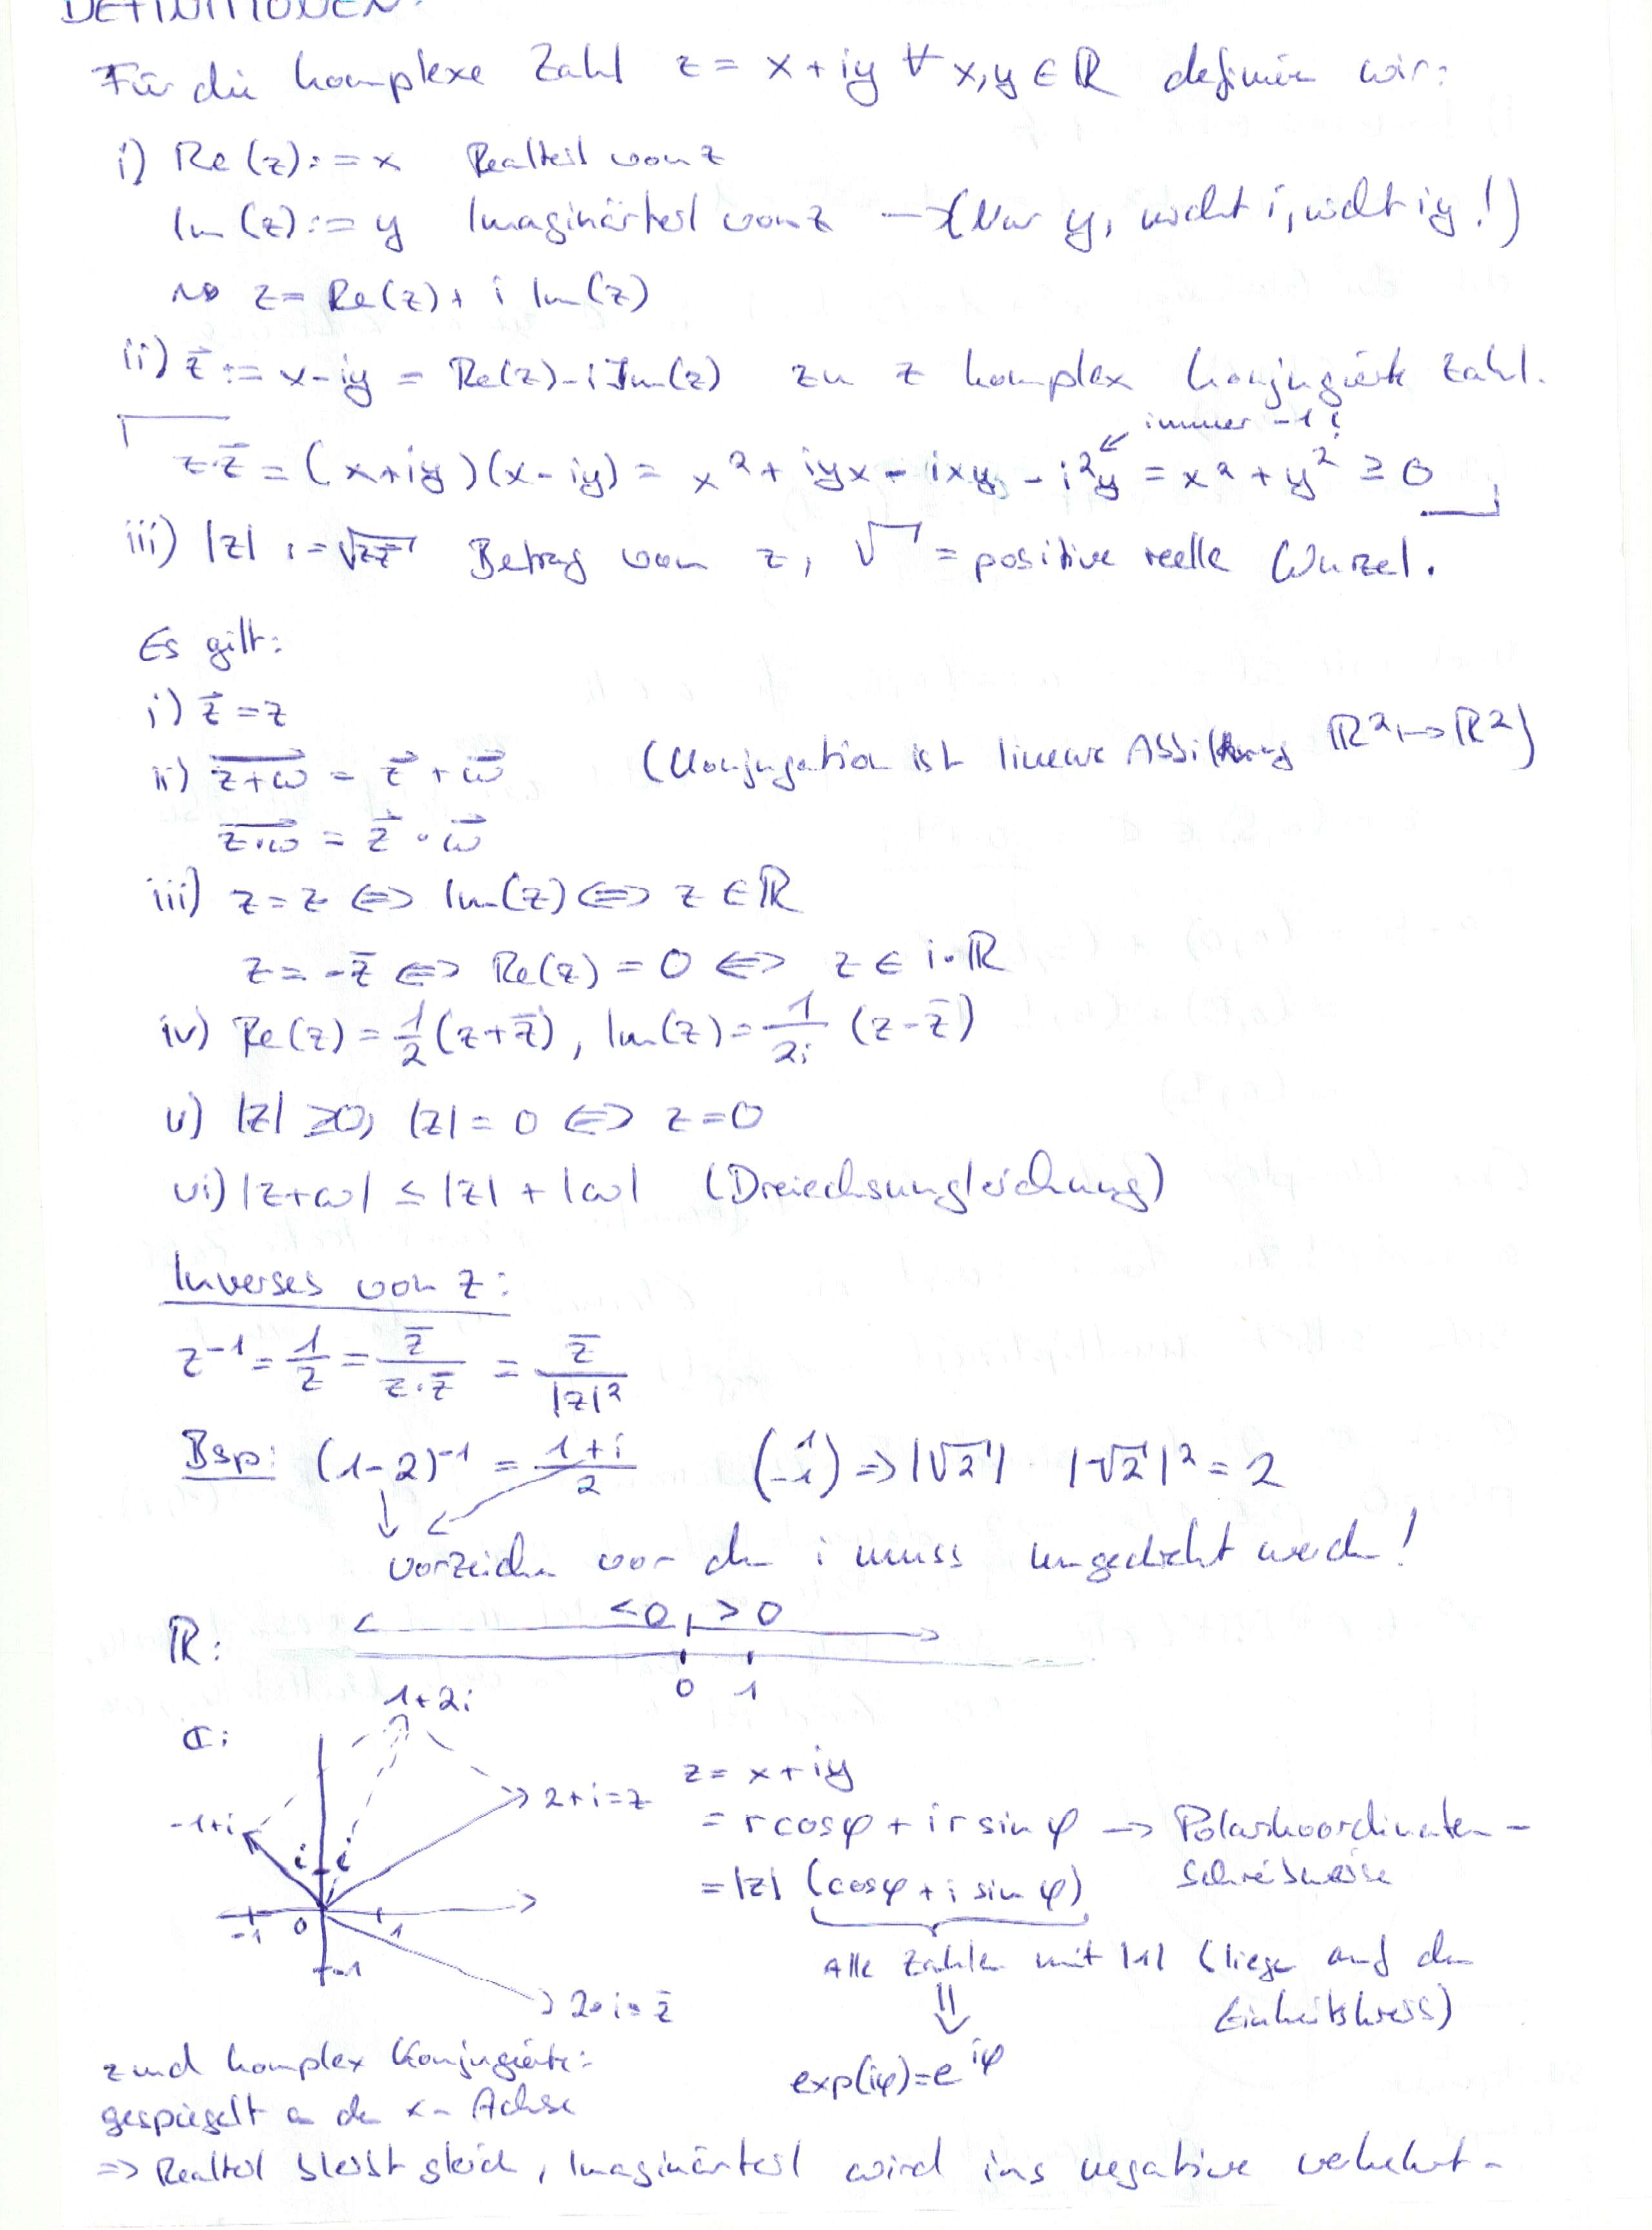 DEFINITIONEN:
Für die komplexe Zahl z = x + iy ∀ x,y ∈ ℝ definieren wir:
i) Re(z) := x Realteil von z
Im(z) := y Imaginärteil von z → (Nur y, nicht i, nicht iy!)
⇝ z = Re(z) + i Im(z)
ii) z̄ := x - iy = Re(z) - i Im(z) zu z komplex konjugierte Zahl.
immer -1!
z·z̄ = (x+iy)(x-iy) = x² + iyx - ixy - i²y² = x² + y² ≥ 0
iii) |z| := √(zz̄) Betrag von z, √ = positive reelle Wurzel.
Es gilt:
i) z̄ = z
ii) \overline{z+ω} = z̄ + ω̄ (Konjugation ist lineare Abbildung ℝ² ↦ ℝ²)
\overline{z·ω} = z̄ · ω̄
iii) z = z ⇔ Im(z) ⇔ z ∈ ℝ
z = -z̄ ⇔ Re(z) = 0 ⇔ z ∈ i·ℝ
iv) Re(z) = 1/2 (z + z̄), Im(z) = 1/2i (z - z̄)
v) |z| ≥ 0, |z| = 0 ⇔ z = 0
vi) |z+ω| ≤ |z| + |ω| (Dreiecksungleichung)
Inverses von z:
z⁻¹ = 1/z = z̄/(z·z̄) = z̄/|z|²
Bsp: (1-2)⁻¹ = (1+i)/2 (1 -1) ⇒ |√2| |√2|² = 2
↓ Vorzeichen vor dem i muss umgedreht werden!
ℝ: <0 >0
0 1
1+2i
ℂ:
-1+i 2+i=z
i i
-1 0 1
-1
2-i=z̄
z = x + iy
= r cos φ + i r sin φ → Polarkoordinaten-
schreibweise
= |z| (cos φ + i sin φ)
Alle Zahlen mit |1| (liegen auf dem
Einheitskreis)
⇓
exp(iφ) = e^{iφ}
z und komplex Konjugierte:
gespiegelt an der x-Achse
⇒ Realteil bleibt gleich, Imaginärteil wird ins negative verkehrt.